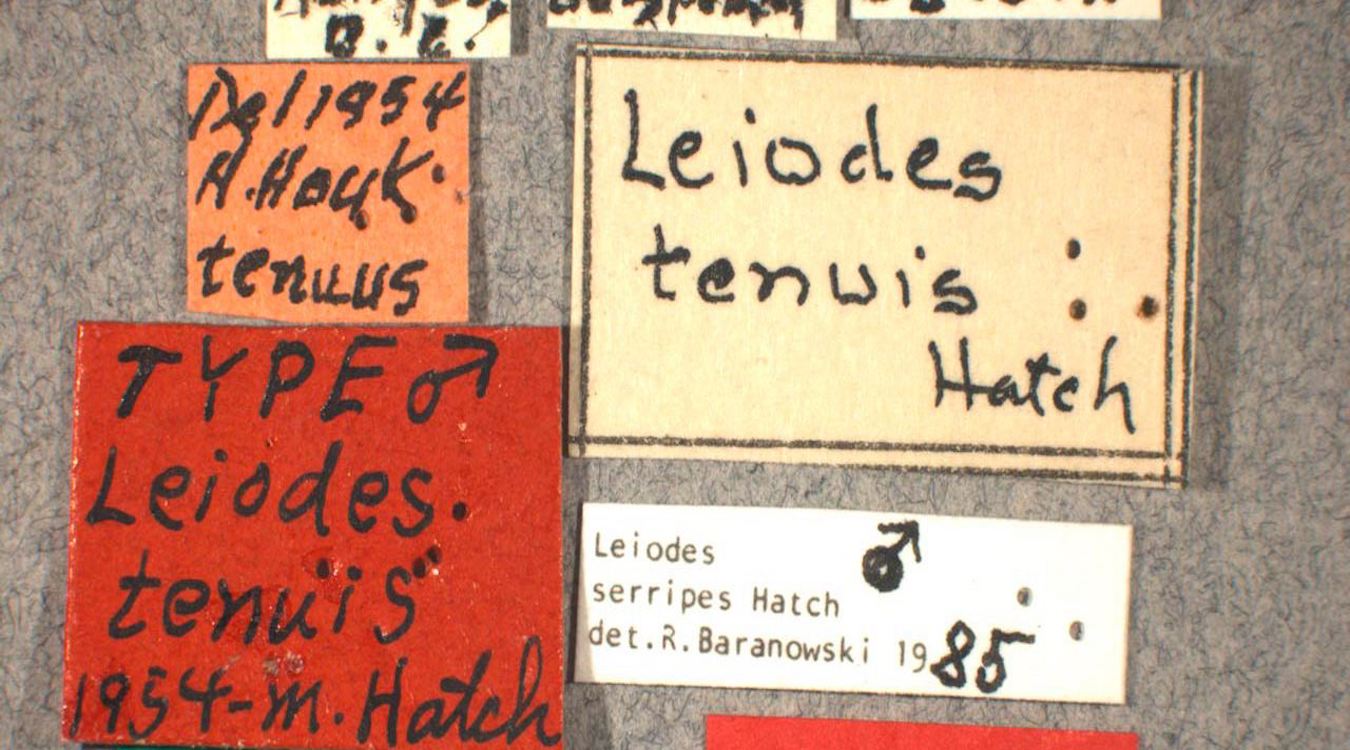 B.C.
Del 1954
H. Houk
tenuus
Leiodes
tenuis
Hatch
TYPE ♂
Leiodes.
tenuis
1954-M. Hatch
Leiodes ♂
serripes Hatch
det.R.Baranowski 1985